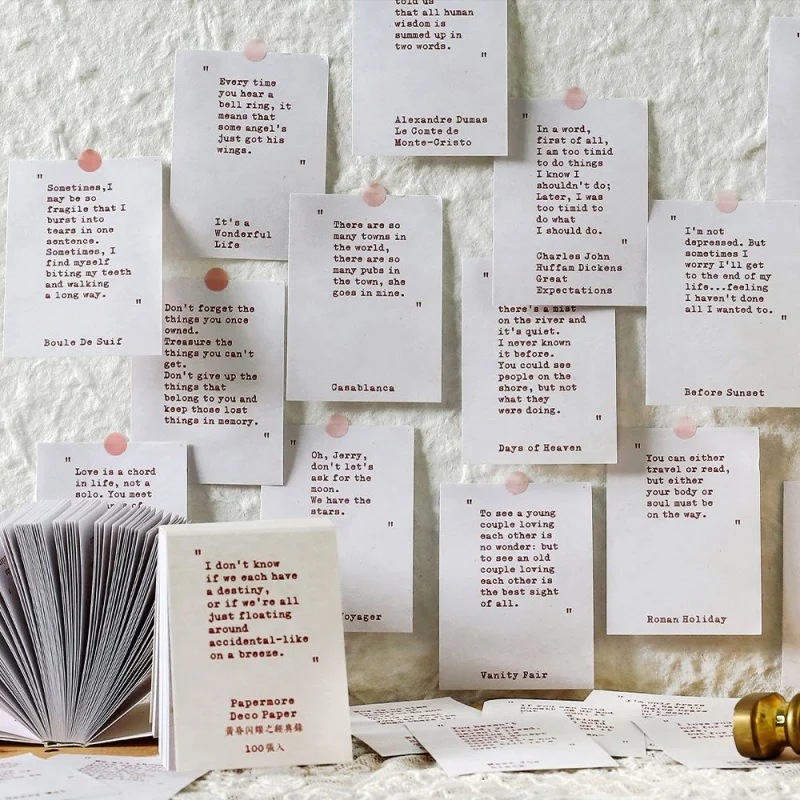 told us
that all human
wisdom is
summed up in
two words.
"
Alexandre Dumas
Le Comte de
Monte-Cristo
"
Every time
you hear a
bell ring, it
means that
some angel's
just got his
wings.
"
It's a
Wonderful
Life
"
In a word,
first of all,
I am too timid
to do things
I know I
shouldn't do;
Later, I was
too timid to
do what
I should do.
"
Charles John
Huffam Dickens
Great
Expectations
"
Sometimes,I
may be so
fragile that I
burst into
tears in one
sentence.
Sometimes, I
find myself
biting my teeth
and walking
a long way.
"
Boule De Suif
"
There are so
many towns in
the world,
there are so
many pubs in
the town, she
goes in mine.
"
Casablanca
"
I'm not
depressed. But
sometimes I
worry I'll get
to the end of my
life...feeling
I haven't done
all I wanted to.
"
Before Sunset
Don't forget the
things you once
owned.
Treasure the
things you can't
get.
Don't give up the
things that
belong to you and
keep those lost
things in memory.
"
"
there's a mist
on the river and
it's quiet.
I never known
it before.
You could see
people on the
shore, but not
what they
were doing.
"
Days of Heaven
"
Love is a chord
in life, not a
solo. You meet
"
Oh, Jerry,
don't let's
ask for the
moon.
We have the
stars.
"
Voyager
"
To see a young
couple loving
each other is
no wonder: but
to see an old
couple loving
each other is
the best sight
of all.
"
Vanity Fair
"
You can either
travel or read,
but either
your body or
soul must be
on the way.
"
Roman Holiday
"
I don't know
if we each have
a destiny,
or if we're all
just floating
around
accidental-like
on a breeze.
"
Papermore
Deco Paper
黃昏閃耀之經典錄
100張入